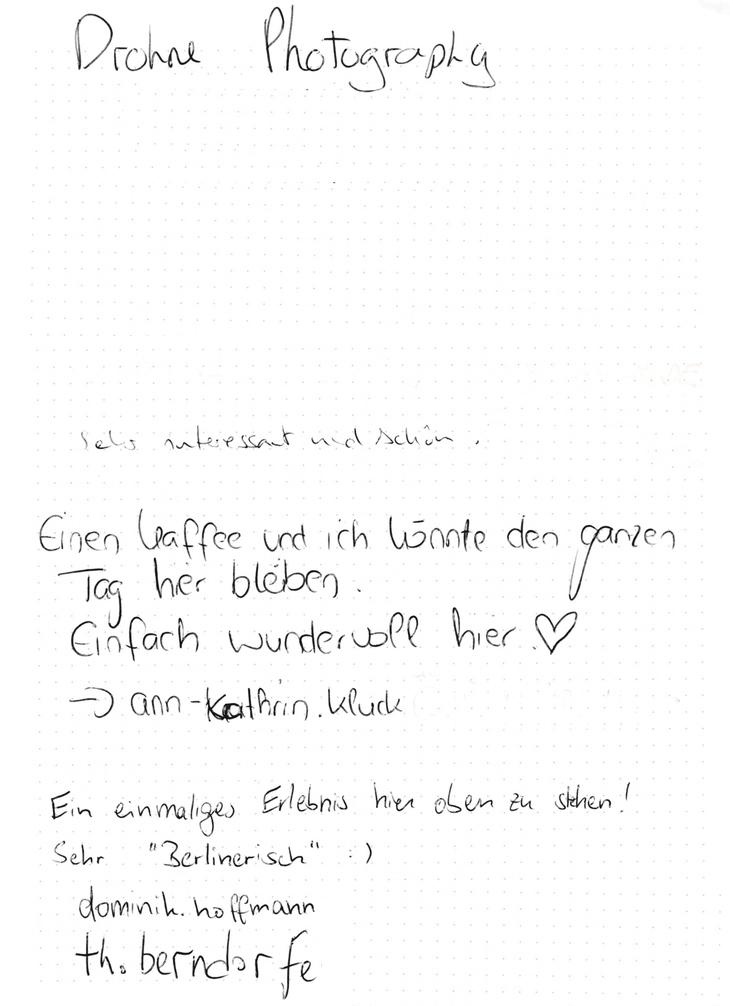 Drohne Photography
Sehr interessant und schön.
Einen Kaffee und ich könnte den ganzen
Tag hier bleiben.
Einfach wundervoll hier ♡
→ ann-kathrin.kluck
Ein einmaliges Erlebnis hier oben zu stehen!
Sehr "Berlinerisch" :)
dominik.hoffmann
th.berndorfe